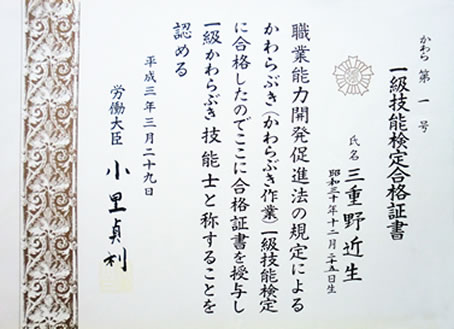 かわら 第一号
一級技能検定合格証書
氏名 三重野近生
昭和三十年十二月二十五日生
職業能力開発促進法の規定による
かわらぶき(かわらぶき作業)一級技能検定
に合格したのでここに合格証書を授与し
一級かわらぶき技能士と称することを
認める
平成三年三月二十九日
労働大臣 小里貞利